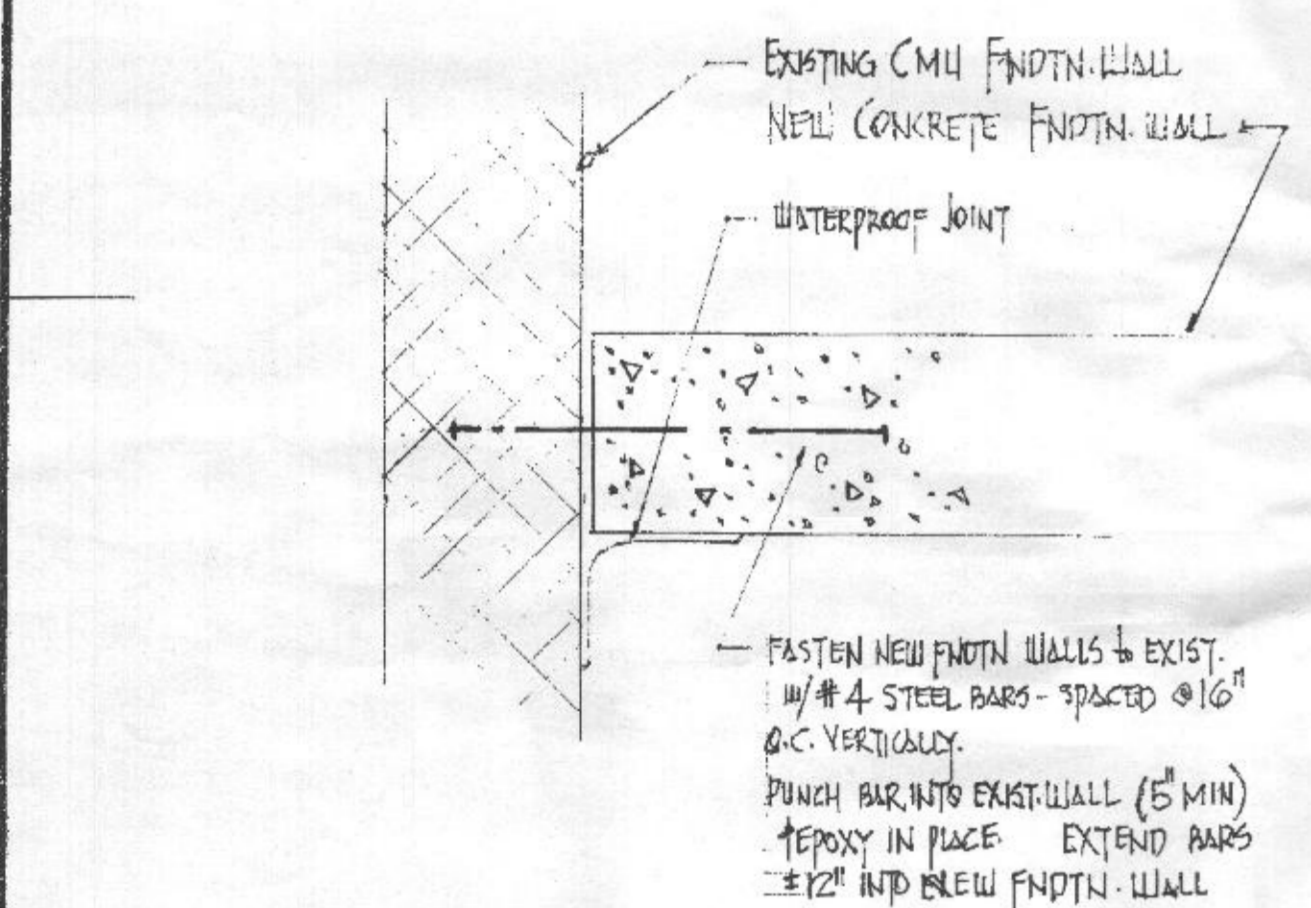 EXISTING CMU FNDTN. WALL
NEW CONCRETE FNDTN. WALL
WATERPROOF JOINT
FASTEN NEW FNDTN WALLS to EXIST.
W/ #4 STEEL BARS - SPACED @ 16"
O.C. VERTICALLY.
PUNCH BAR INTO EXIST. WALL (5" MIN)
& EPOXY IN PLACE. EXTEND BARS
±12" INTO NEW FNDTN. WALL